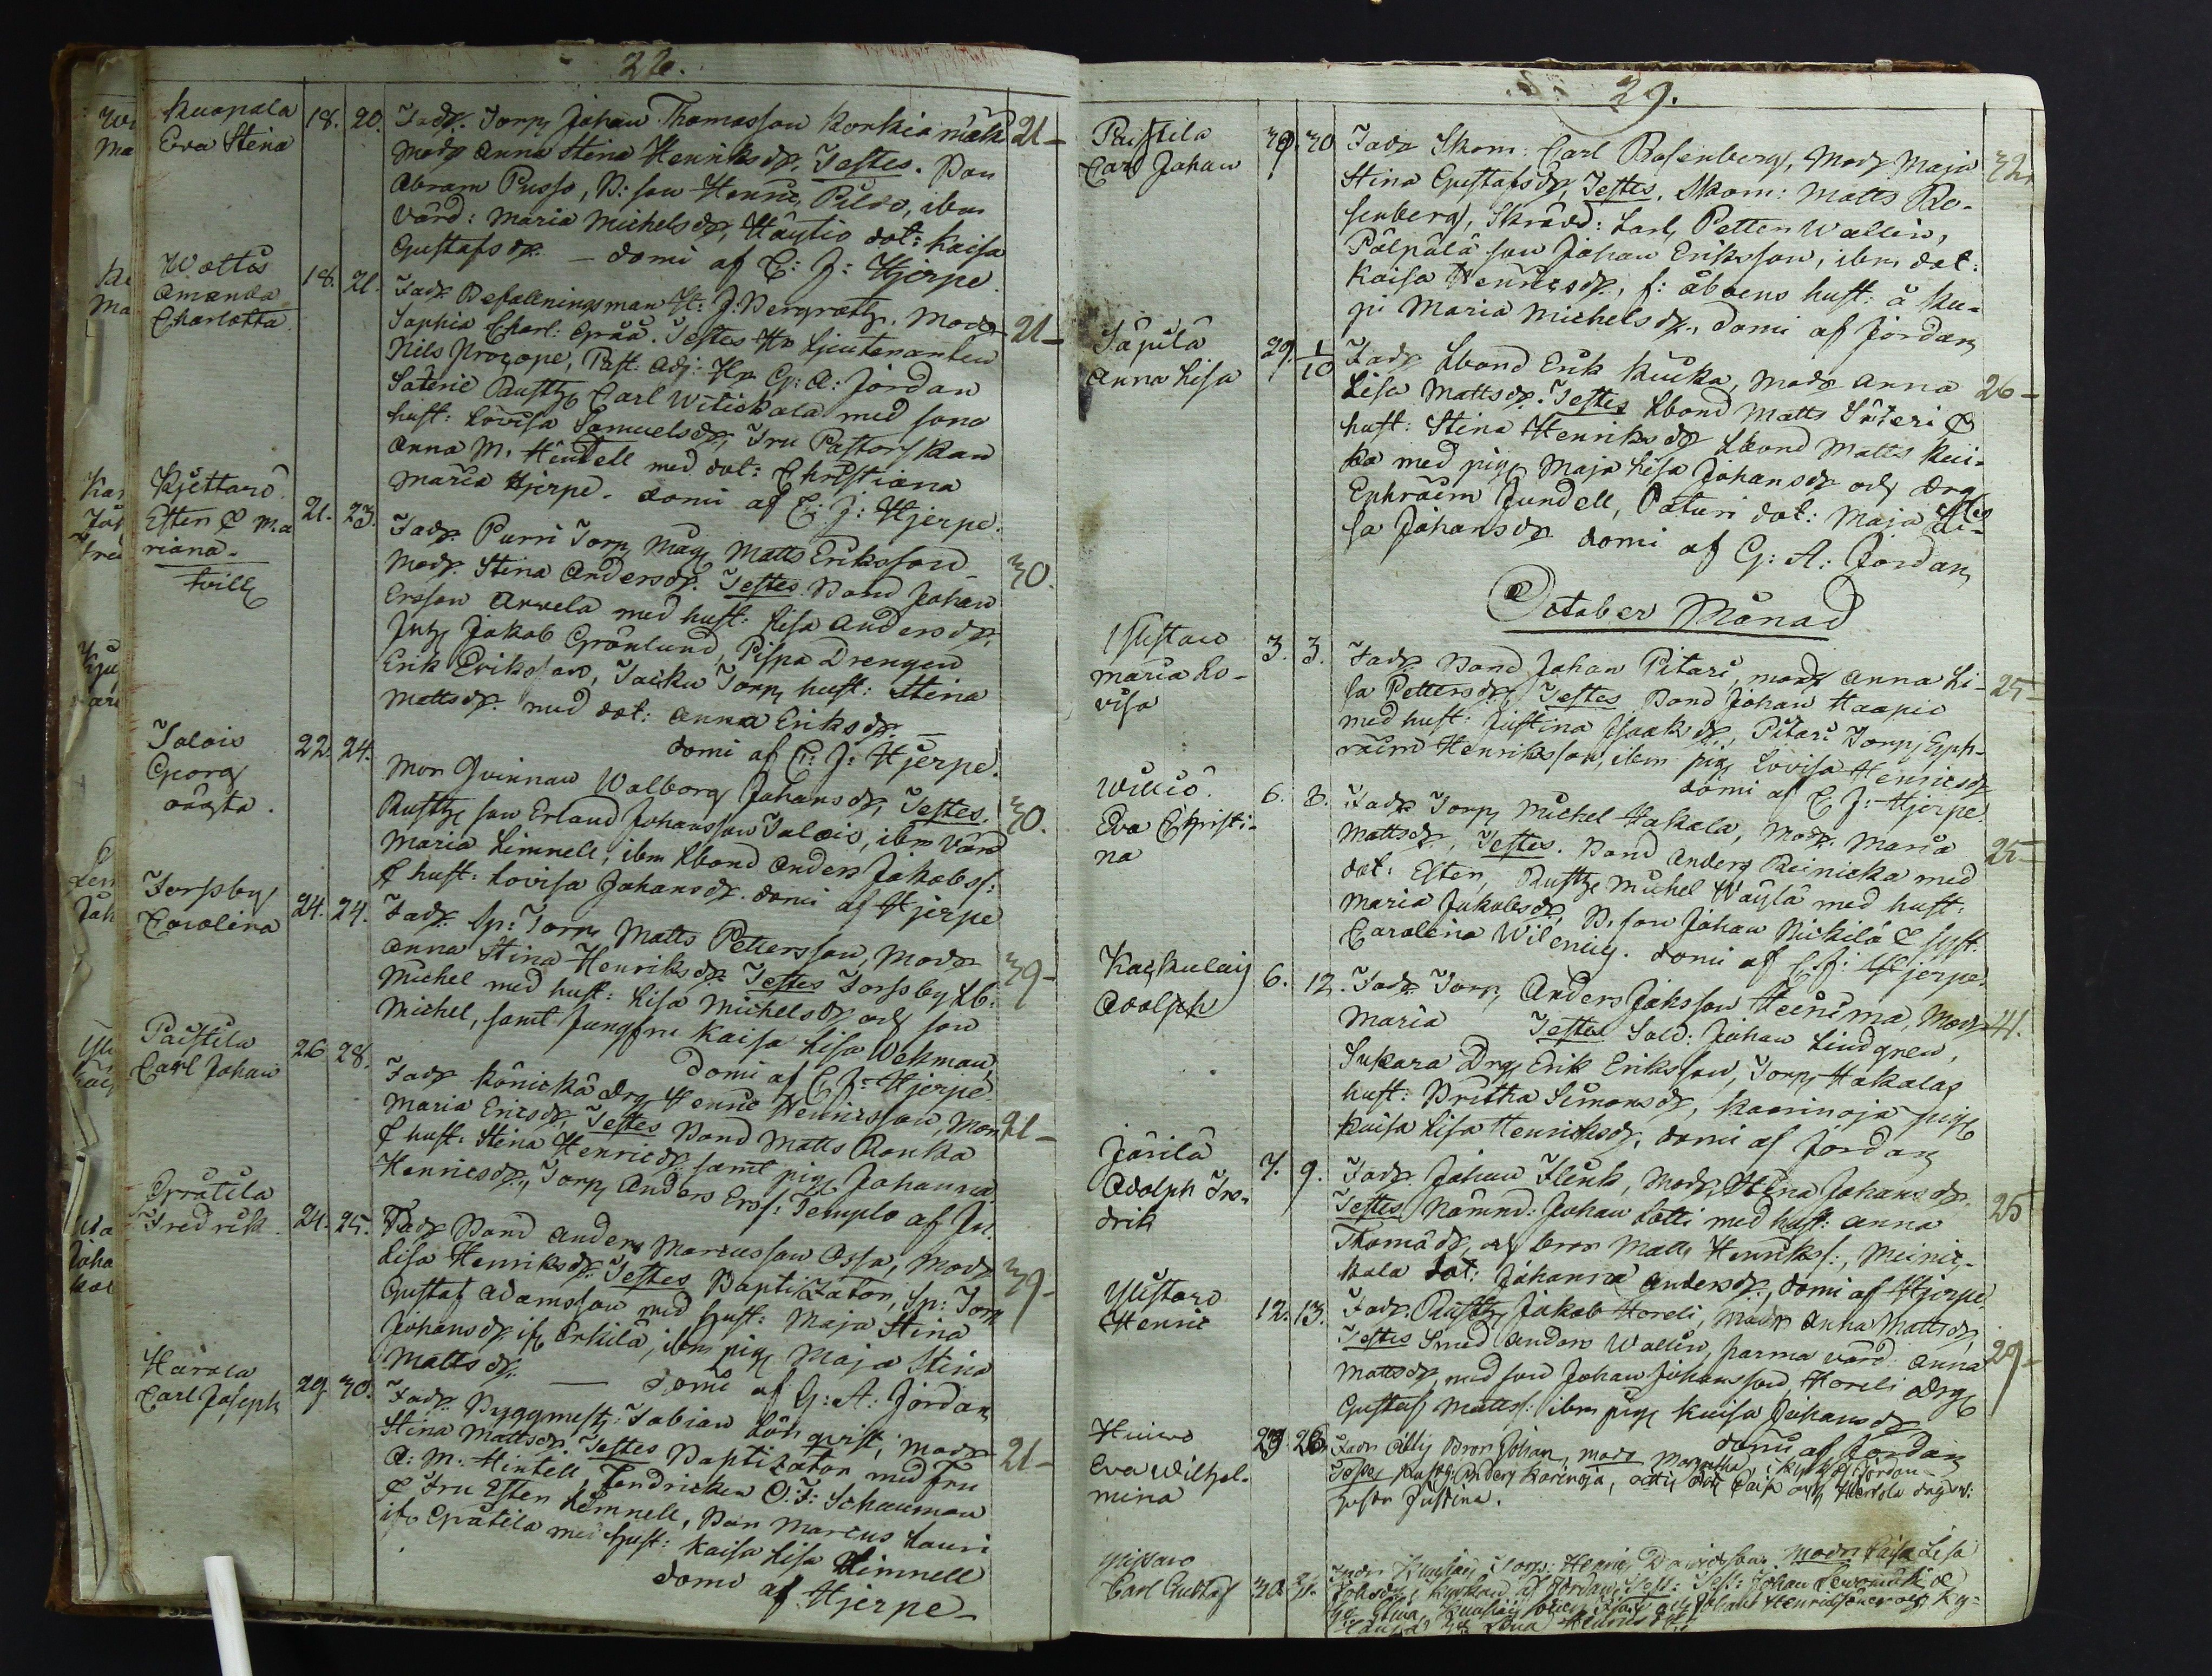 28.
Kuapala
Eva Stena
18. 20.
Fadr. Torp. Johan Thomasson Korkia mäki
Modr Anna Stina Henriksdr. Testes. Bon
Abram Russo, B: son Henric, Pildo, ibm
Värd: Maria Michelsdr, Häytiö dot: Kaisa
Gustafsdr. – domi af C: J: Hjerpe.
21 –
Wättis
Amanda
Charlotta
18. 21.
Fadr. Befallningsman Hr: J: Bergroth. Modr
Sophia Charl: Gråå. Testes Hr Lieutenanten
Nils Procope, Past: Adj: Hr G: A: Jordan
Säterie Rustg Carl Witickala med sona
hust: Lovisa Samuelsdr, Fru Pastorskan
Anna M. Hintell med dot: Christiana
Maria Hjerpe. domi af C: J: Hjerpe.
21 –
Kjettarö
Ester & Ma
riana.
tvill
21. 23.
Fadr. Purri Torp Måg Matts Eriksson
Modr. Stina Andersdr. Testes Bond Johan
Ersson Arvela med hust: Lisa Andersdr,
Jnh Jakob Grönlund, Pispa Drengen
Erik Eriksson, Jacku Torp hust: Stina
Mattsdr. med dot: Anna Eriksdr. –
domi af C: J: Hjerpe.
30.
Talois
Georg
oägta.
22. 24.
Mor Qvinnan Walborg Johansdr, Testes.
Rustg son Erland Johansson Talois, ibm Värd
Maria Limnell, ibm Lbond Anders Jakobss:
& hust: Lovisa Johansdr. domi af Hjerpe
30.
Torssby
Carolina
24. 24.
Fadr. Sp: Torp Matts Pettersson, Modr
Anna Stina Henriksdr. Testes Torssby Lb:
Michel med hust: Lisa Michelsdr och son
Michel, samt Jungfru Kaisa Lisa Wekman,
domi af C: J: Hjerpe.
39 –
Päistila
Carl Johan
26 28.
Fadr Könickä Drg Henric Henricsson, Mor
Maria Ericsdr, Testes Bond Matts Ranka
& hust: Stina Henricsdr. samt pig Johanna
Henricsdr, Torp Anders Erss: Templo af Jn.
21 –
Gråtila
Fredrik
24. 25.
Fadr Bond Anders Marcusson Ossa, Modr
Lisa Henriksdr. Testes Baptizator, Sp: Torp
Gustaf Adamsson med hust: Maja Stina
Johansdr if Erkilä, ibm pig Maja Stina
Mattsdr. – domi af G: A: Jordan
39 –
Härola
Carl Joseph
29 30.
Fadr. Byggmest: Fabian Lönqvist, Modr
Stina Mattsdr. Testes Baptizator med Fru
A: M: Hintell, Fendricken O: F: Schauman
& Fru Ester Limnell, Bon Marcus Lauri
ifr Gråtila med hust: Kaisa Lisa Himnell
domi af Hjerpe –
21 –
29.
Päistila
Carl Johan
29. 30
Fadr Skom: Carl Rosenberg, Modr Maja
Stina Gustafsdr, Testes. Skom: Matts Ro-
senberg, Skrädd: Lärl Petter Wallin,
Pälpälä son Johan Eriksson, ibm dot:
Kaisa Henricsdr, f: åboens hust: å Ku-
pi Maria Michelsdr, domi af Jordan
32.
Säpilä
Anna Lisa
29. 1/10
Fadr Lbond Erik Kuicka, Modr Anna
Lisa Mattsdr. Testes Lbond Matts Säteri &
hust: Stina Henriksdr Lbond Matts Kui-
ka med pig Maja Lisa Johansdr och Drg
Ephraim Jundell, Paturi dot: Maja Li-
sa Johansdr domi af G: A: Jordan
26 –
October Månad
Ylistaro
Maria Lo-
visa
3. 3.
Fadr Bond Johan Pitari, Modr Anna Li-
sa Pettersdr, Testes Bond Johan Haapio
med hust: Justina Isaaksdr, Pitari Torp Eph-
raim Henriksson, ibm pig Lovisa Henricsdr
domi af C J: Hjerpe
25 –
Wiiliö
Eva Christi-
na
6. 8.
Fadr Torp Michel Hakala, Modr Maria
Mattsdr, Testes. Bond Anders Reinicka med
dot: Ester, Rustg Michel Wäylä med hust:
Maria Jakobsdr, B. son Johan Nickilä & syst:
Carolina Wilenius. domi af C J: Hjerpe
25 –
Kaskulaig
Adolph
6. 12.
Fadr Torp Anders Jaksson Heinima, Modr
Maria Testes Sold: Johan Lindgren,
Sukara Drg Erik Eriksson, Torp Hakalas
hust: Britha Simonsdr, Kaarinoja pig
Kaisa Lisa Henriksdr, domi af Jordan
41.
Järilä
Adolph Fre-
drik
7. 9.
Fadr. Johan Flink, Modr Stina Johansdr.
Testes Nämnd: Johan Lotti med hust: Anna
Thomädr, och bror Matts Henrikss:, Meinic-
kala dot: Johanna Andersdr, domi af Hjerpe
25
Ylistaro
Henric
12. 13.
Fadr. Rustg Jakob Horeli, Modr Anna Mattsdr
Testes Smed Anders Wallin, Parma värd: Anna
Mattsdr med son Johan Johansson, Horeli Drg
Gustaf Matts: ibm pig Kaisa Johansdr
domi af Jordan
29 –
Huiwo
Eva Wilhel-
mina
23 26
Fadr Ally Bror Johan, Modr Margetha, i kyrk af Jordan
Testes Rustg: Anders Karinoja, Ally dot Caisa och Härola dagsw:
hustr Justina.
Nissaro
Carl Gustaf
30. 31.
Fadr Knussi Torp: Henric Davidsson Modr Caisa Lisa
Johsdr i kyrkan af Jordan, Test: Johan